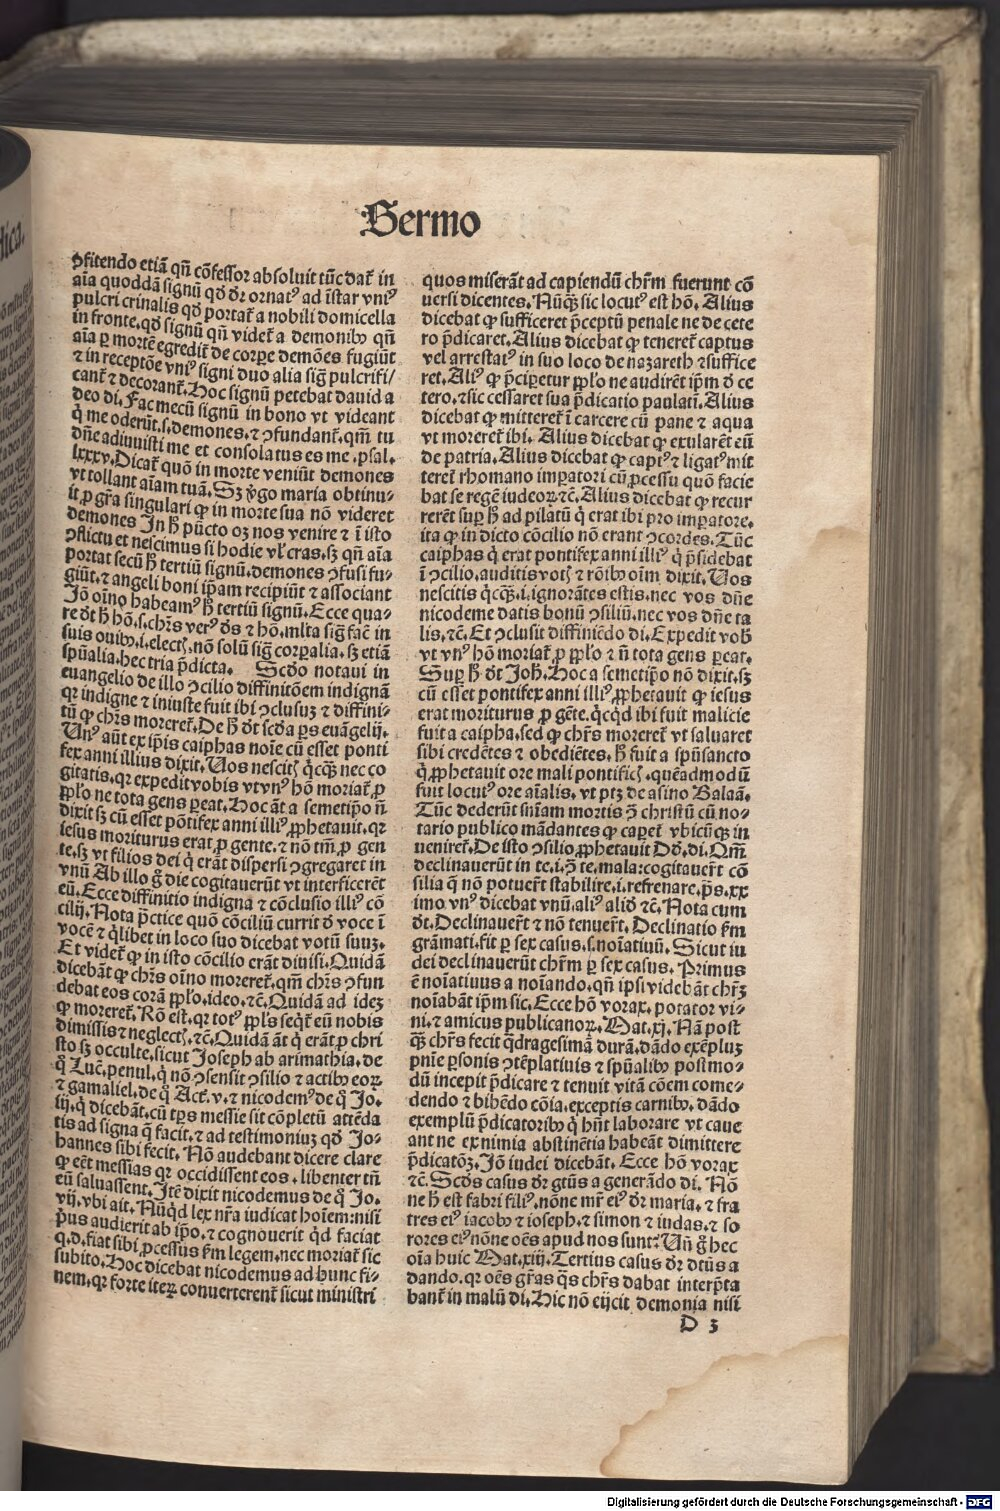 Sermo
ꝯfitendo etiã qñ cõfessor absoluit tũc dat᷑ in
aĩa quoddã signũ qđ dr̃ ornatꝰ ad ĩstar vniꝰ
pulcri crinalis qđ portat᷑ a nobili domicella
in fronte. qđ signũ qñ videt᷑ a demonibꝰ qñ
aĩa ꝑ mortẽ egredit᷑ de corꝑe demões fugiũt
⁊ in receptõe vniꝰ signi duo alia sig̃ pulcrifi/
cant᷑ ⁊ decorant᷑. Hoc signũ petebat dauid a
deo di. Fac mecũ signũ in bono vt videant
q̇ me oderũt. s. demones. ⁊ ꝯfundant᷑. qm̃ tu
dñe adiuuisti me et consolatus es me. psal.
lxxxv. Dicat᷑ quõ in morte veniũt demones
vt tollant aĩam tuã. Sꝫ ṽgo maria obtinu⸗
it ꝓ gr̃a singulari ꝙ in morte sua nõ videret
demones In h̃ pũcto oꝫ nos venire ⁊ ĩ isto
ꝯflictu et nescimus si hodie vl̃ cras. sꝫ qñ aĩa
portat secũ h̃ tertiũ signũ. demones ꝯfusi fu⸗
giũt. ⁊ angeli boni ip̃am recipiũt ⁊ associant
Jõ oĩno habeamꝰ h̃ tertiũ signũ. Ecce qua⸗
re dr̃t h̃ hõ. s. chr̃s verꝰ ds̃ ⁊ hõ. ml̃ta sig̃ facẽ in
suis ouibꝰ. i. electꝭ. nõ solũ sig̃ corꝑalia. sꝫ etiã
sp̃ualia. hec tria p̃dicta. Scđo notaui in
euangelio de illo ꝯcilio diffinitõem indignã
qꝛ indigne ⁊ iniuste fuit ibi ꝯclusuꝫ ⁊ diffini⸗
tũ ꝙ chr̃s moreret᷑. De h̃ dr̃t scđa ꝑs euãgelij.
Vnꝰ aũt ex ip̃is caiphas noĩe cũ esset ponti
fex anni illius dixit. Uos nescitꝭ q̇cꝗꝫ nec co
gitatis. qꝛ expedit vobis vt vnꝰ hõ moriat᷑ ꝓ
pp̃lo ne tota gens ꝑeat. Hoc ãt a semetip̃o ñ
dixit sꝫ cũ esset põtifex anni illiꝰ ꝓphetauit. qꝛ
iesus moriturus erat ꝓ gente. ⁊ nõ tm̃ ꝓ gen
te. sꝫ vt filios dei q̇ erãt dispersi ꝯgregaret in
vnũ Ab illo g̊ die cogitauerũt vt interficerẽt
eũ. Ecce diffinitio indigna ⁊ cõclusio illiꝰ cõ
cilij. Nota p̃ctice quõ cõciliũ currit đ voce ĩ
vocẽ ⁊ q̇libet in loco suo dicebat votũ suuꝫ.
Et videt᷑ ꝙ in isto cõcilio erãt diuisi. Quidã
dicebãt ꝙ chr̃s oĩno moreret᷑. qm̃ chr̃s ꝯfun
debat eos corã pp̃lo. ideo. ⁊c̃. Quidã ad ideꝫ
ꝙ moreret᷑. Rõ est. qꝛ totꝰ pp̃ls seqt᷑ eũ nobis
dimissis ⁊ neglectꝭ. ⁊c̃. Quidã ãt q̇ erãt ꝓ chri
sto sꝫ occulte. sicut Joseph ab arimathia. de
q̊ Luc̃. penul. q̇ nõ ꝯsensit ꝯsilio ⁊ actibꝰ eoꝝ
⁊ gamaliel. de q̊ Act̃. v. ⁊ nicodemꝰ de q̊ Jo.
iij. q̇ dicebãt. cũ tꝑs messie sit cõpletũ attẽda
tis ad signa q̃ facit. ⁊ ad testimoniuꝫ qđ Jo⸗
hannes sibi fecit. Nõ audebant dicere clare
ꝙ eẽt messias qꝛ occidissent eos. libenter tñ
eũ saluassent. Jtẽ dixit nicodemus de q̊ Jo.
vij. vbi ait. Nũqđ lex nr̃a iudicat hoĩem: nisi
p̃us audierit ab ip̃o. ⁊ cognouerit qđ faciat
q. d. fiat sibi ꝓcessus ẜm legem. nec moriat᷑ sic
subito. Hoc dicebat nicodemus ad hunc fi⸗
nem. qꝛ forte iteꝝ conuerterent᷑ sicut ministri
quos miserãt ad capiendũ chr̃m fuerunt cõ
uersi dicentes. Nũqꝫ sic locutꝰ est hõ. Alius
dicebat ꝙ sufficeret p̃ceptũ penale ne de cete
ro p̃dicaret. Alius dicebat ꝙ teneret᷑ captus
vel arrestatꝰ in suo loco de nazareth ⁊ suffice
ret. Aliꝰ ꝙ p̃ciꝑetur pp̃lo ne audirẽt ip̃m đ ce
tero. ⁊ sic cessaret sua p̃dicatio paulatĩ. Alius
dicebat ꝙ mitteret᷑ ĩ carcere cũ pane ⁊ aqua
vt moreret᷑ ibi. Alius dicebat ꝙ exularẽt eũ
de patria. Alius dicebat ꝙ captꝰ ⁊ ligatꝰ mit
teret᷑ rhomano imꝑatori cũ ꝓcessu quõ facie
bat se regẽ iudeoꝝ. ⁊c̃. Alius dicebat ꝙ recur
rerẽt suꝑ h̃ ad pilatũ q̇ erat ibi pro imꝑatore.
ita ꝙ in dicto cõcilio nõ erant ꝯcordes. Tũc
caiphas q̇ erat pontifex anni illiꝰ q̇ p̃sidebat
ĩ ꝯcilio. auditis votꝭ ⁊ rõibꝰ oĩm dixit. Uos
nescitis q̇cꝗꝫ. i. ignorãtes estis. nec vos dñe
nicodeme datis bonũ ꝯsiliũ. nec vos dñe ta
lis. ⁊c̃. Et ꝯclusit diffiniẽdo di. Expedit vob̃
vt vnꝰ hõ moriat᷑ ꝓ pp̃lo ⁊ ñ tota gens ꝑeat.
Suꝑ h̃ dr̃t Joh̃. Hoc a semetip̃o nõ dixit. sꝫ
cũ esset pontifex anni illiꝰ ꝓphetauit ꝙ iesus
erat moriturus ꝓ gẽte. q̇cqđ ibi fuit malicie
fuit a caipha. sed ꝙ chr̃s moreret᷑ vt saluaret
sibi credẽtes ⁊ obediẽtes. h̃ fuit a sp̃usancto
q̇ ꝓphetauit ore mali pontificꝭ. quẽadmodũ
fuit locutꝰ ore aĩalis. vt ptꝫ de asino Balaã.
Tũc dederũt sñiam mortis ꝯ̃ christũ cũ no⸗
tario publico mãdantes ꝙ capet᷑ vbicũqꝫ in
ueniret᷑. De isto ꝯsilio ꝓphetauit Dđ. di. Qm̃
declinauerũt in te. i. ꝯ̃ te. mala: cogitauer̃t cõ
silia q̃ nõ potuer̃t stabilire. i. refrenare. p̃s. xx
imo vnꝰ dicebat vnũ. aliꝰ aliđ ⁊c̃. Nota cum
dr̃t. Declinauer̃t ⁊ nõ tenuer̃t. Declinatio ẜm
grãmati. fit ꝑ sex casus. s. noĩatiuũ. Sicut iu
dei declinauerũt chr̃m ꝑ sex casus. Primus
ẽ noĩatiuus a noĩando. qñ ipsi videbãt chr̃ꝫ
noĩabãt ip̃m sic. Ecce hõ vorax. potator vi⸗
ni. ⁊ amicus publicanoꝝ. Mat. xj. Nã post
qꝫ chr̃s fecit q̃dragesimã durã. dãdo exẽpluꝫ
pñie ꝑsonis ꝯtẽplatiuis ⁊ sp̃ualibꝰ postmo⸗
dũ incepit p̃dicare ⁊ tenuit vitã cõem come⸗
dendo ⁊ bibẽdo cõia. exceptis carnibꝰ. dãdo
exemplũ p̃dicatoribꝰ q̇ hñt laborare vt caue
ant ne ex nimia abstinẽtia habeãt dimittere
p̃dicatõꝫ. Jõ iudei dicebãt. Ecce hõ vorax
⁊c̃. Scđs casus dr̃ gtũs a generãdo di. Nõ
ne h̃ est fabri filiꝰ. nõne mr̃ eiꝰ dr̃ maria. ⁊ fra
tres eiꝰ iacobꝰ ⁊ ioseph. ⁊ simon ⁊ iudas. ⁊ so
rores eiꝰ nõne oẽs apud nos sunt? Uñ g̊ hec
oĩa huic Mat. xiij. Tertius casus dr̃ dtũs a
dando. qꝛ oẽs gr̃as q̃s chr̃s dabat interp̃ta
bant᷑ in malũ di. Hic nõ eijcit demonia nisi
D 3
Digitalisierung gefördert durch die Deutsche Forschungsgemeinschaft - DFG